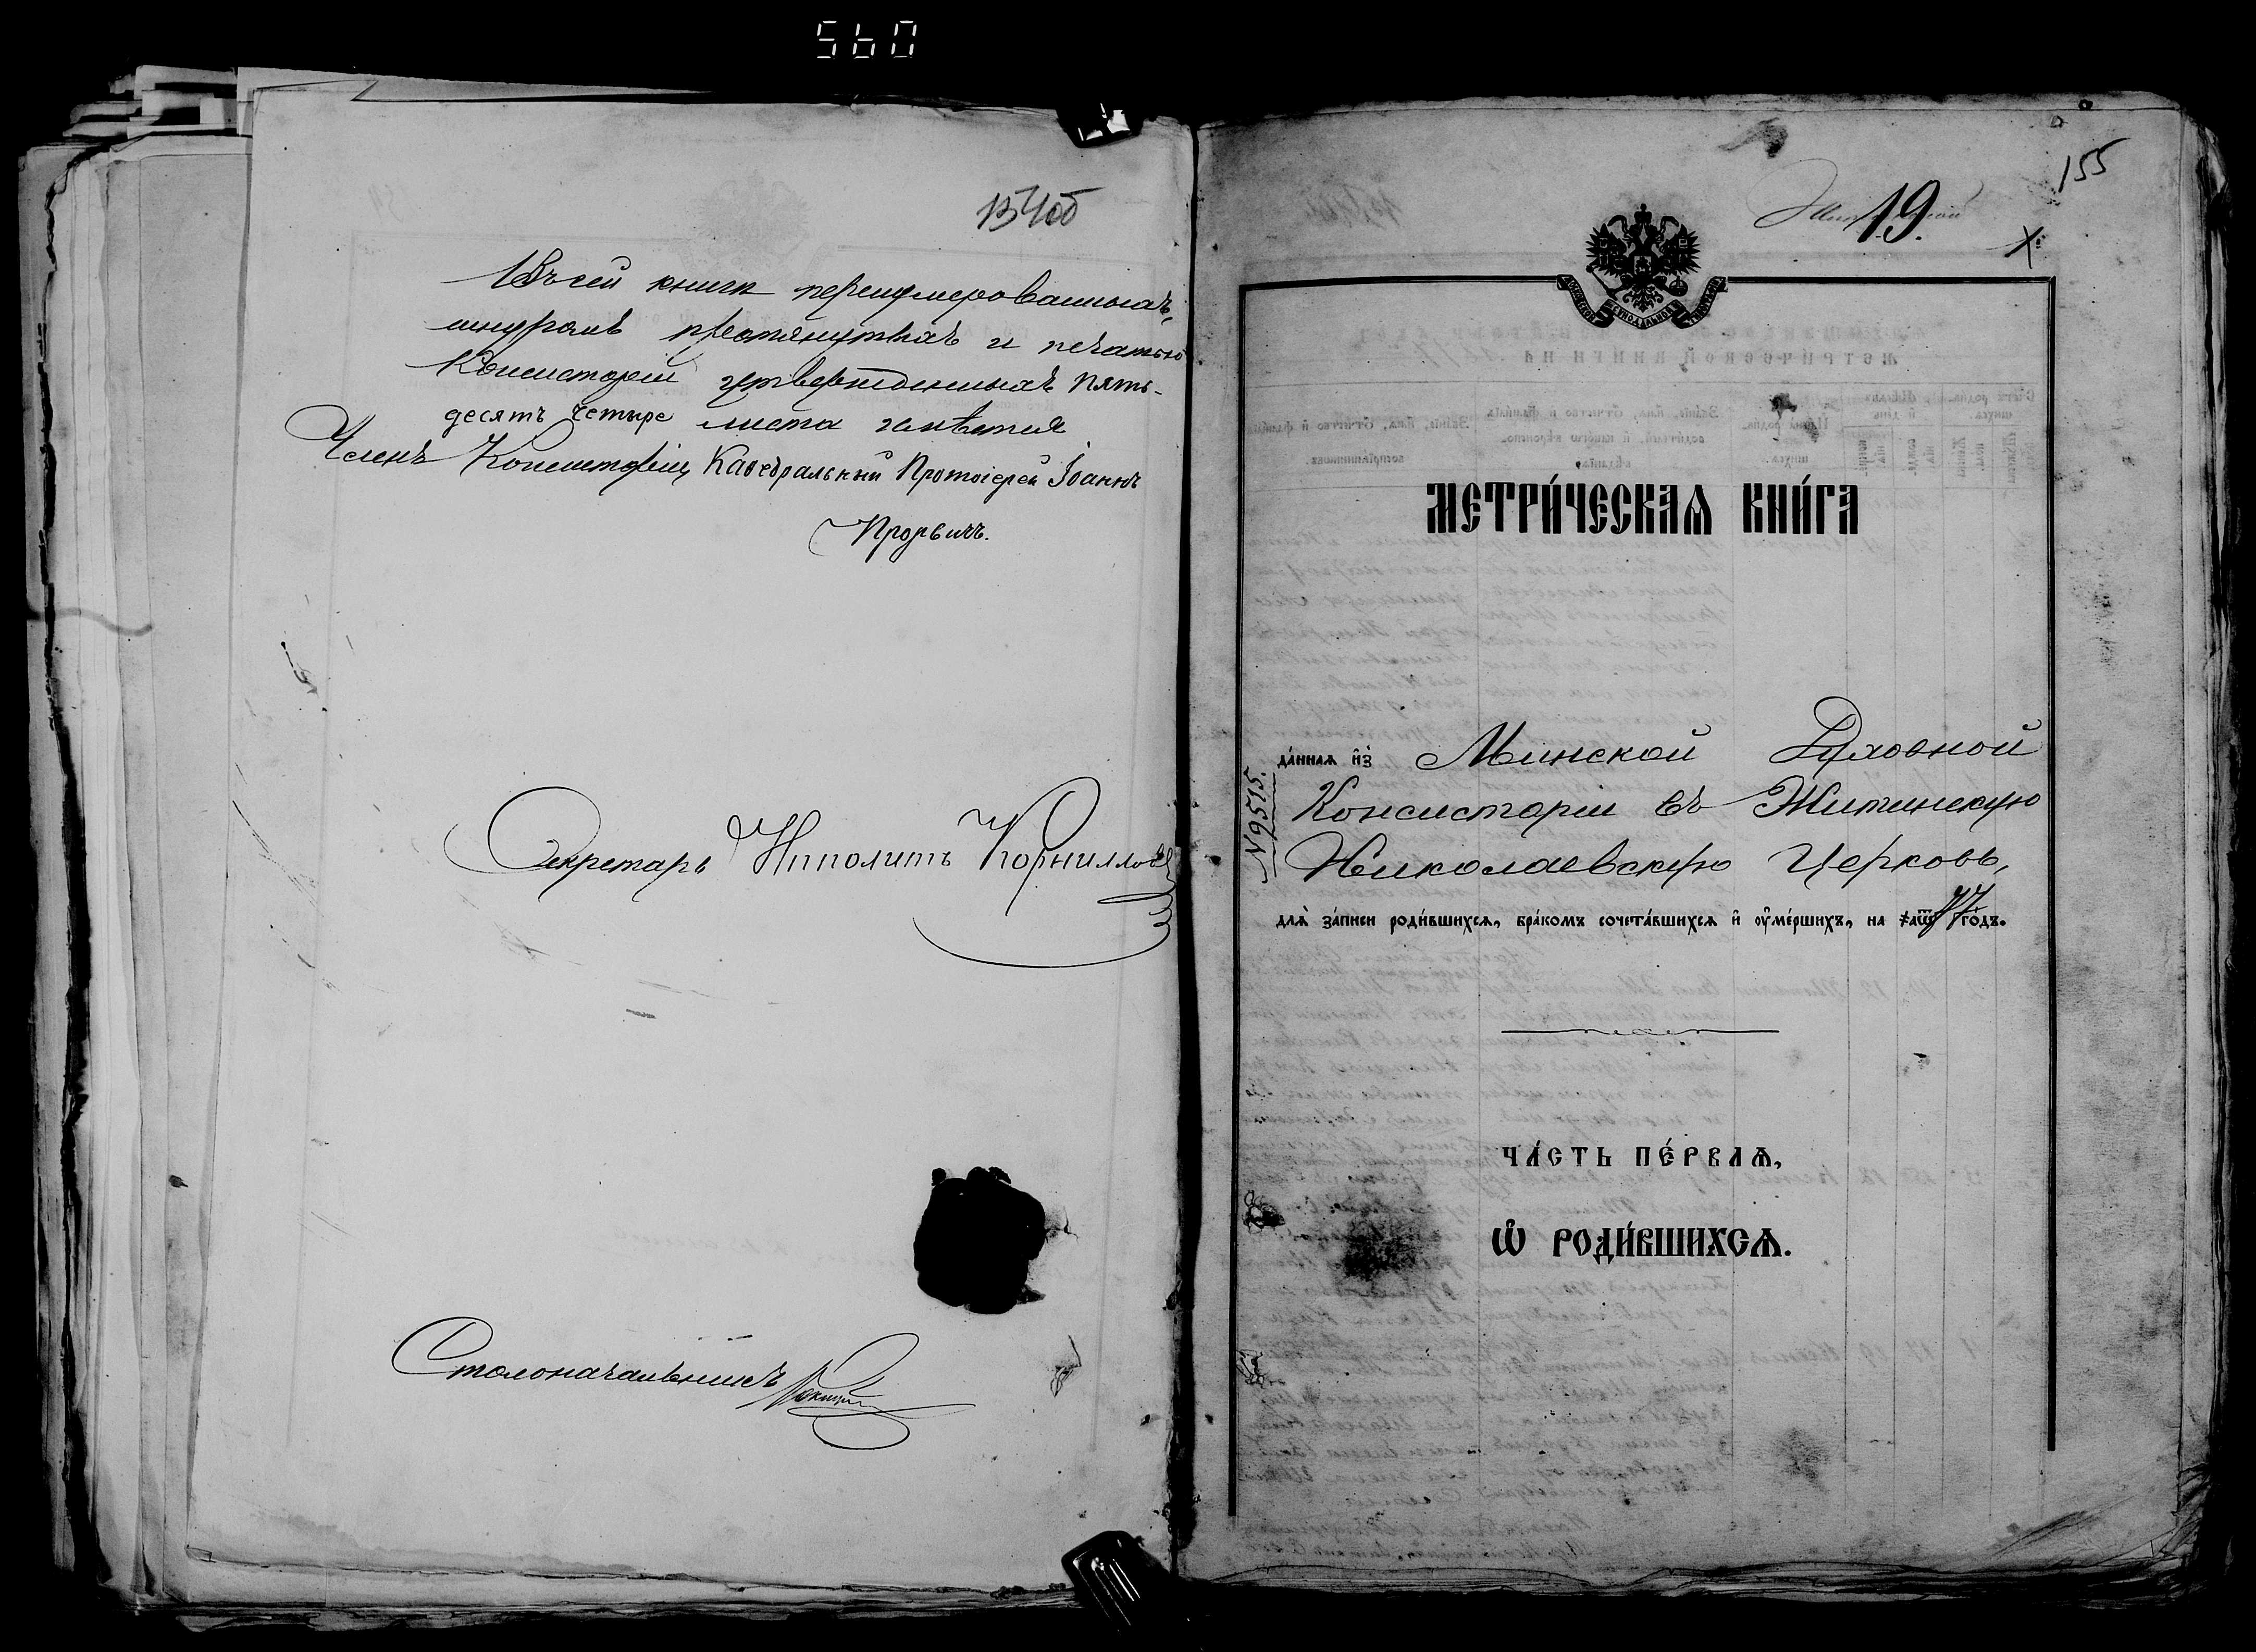 560
154об
Въ сей книгѣ перенумерованныхъ,
шнуромъ протянутыхъ и печатью
Консисторіи утвержденныхъ пять-
десятъ четыре листа имѣется
Членъ Консисторіи, Каѳедральный Протоіерей Іоаннъ
Прорвичъ.
Секретарь Ипполитъ Корнилловъ
Столоначальникъ
155
19.
МЕТРИ́ЧЕСКАѦ КНИ́ГА
да́ннаѧ и҆з̾ Минской Духовной
Консисторіи въ Житинскую
Николаевскую Церковь,
№ 9515.
для̀ за́писи роди́вшихсѧ, бра́комъ сочета́вшихсѧ и҆ ᲂу҆ме́ршихъ, на ҂аѿ77 го́дъ.
ЧА́СТЬ ПЕ́РВАѦ,
Ѡ҆ РОДИ́ВШИХСѦ.